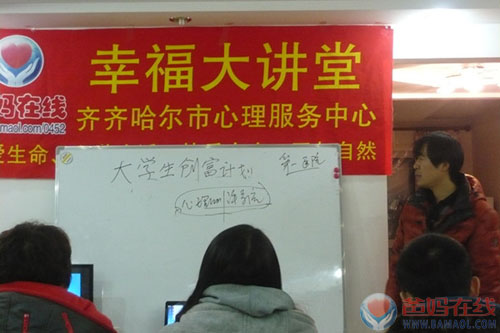 幸福大讲堂
妈在线
maol.com/0452
齐齐哈尔市心理服务中心
爱生命、
自然
大学生创富计划
第一医院
心理
芭妈在线
WWW.BAMAOL.COM